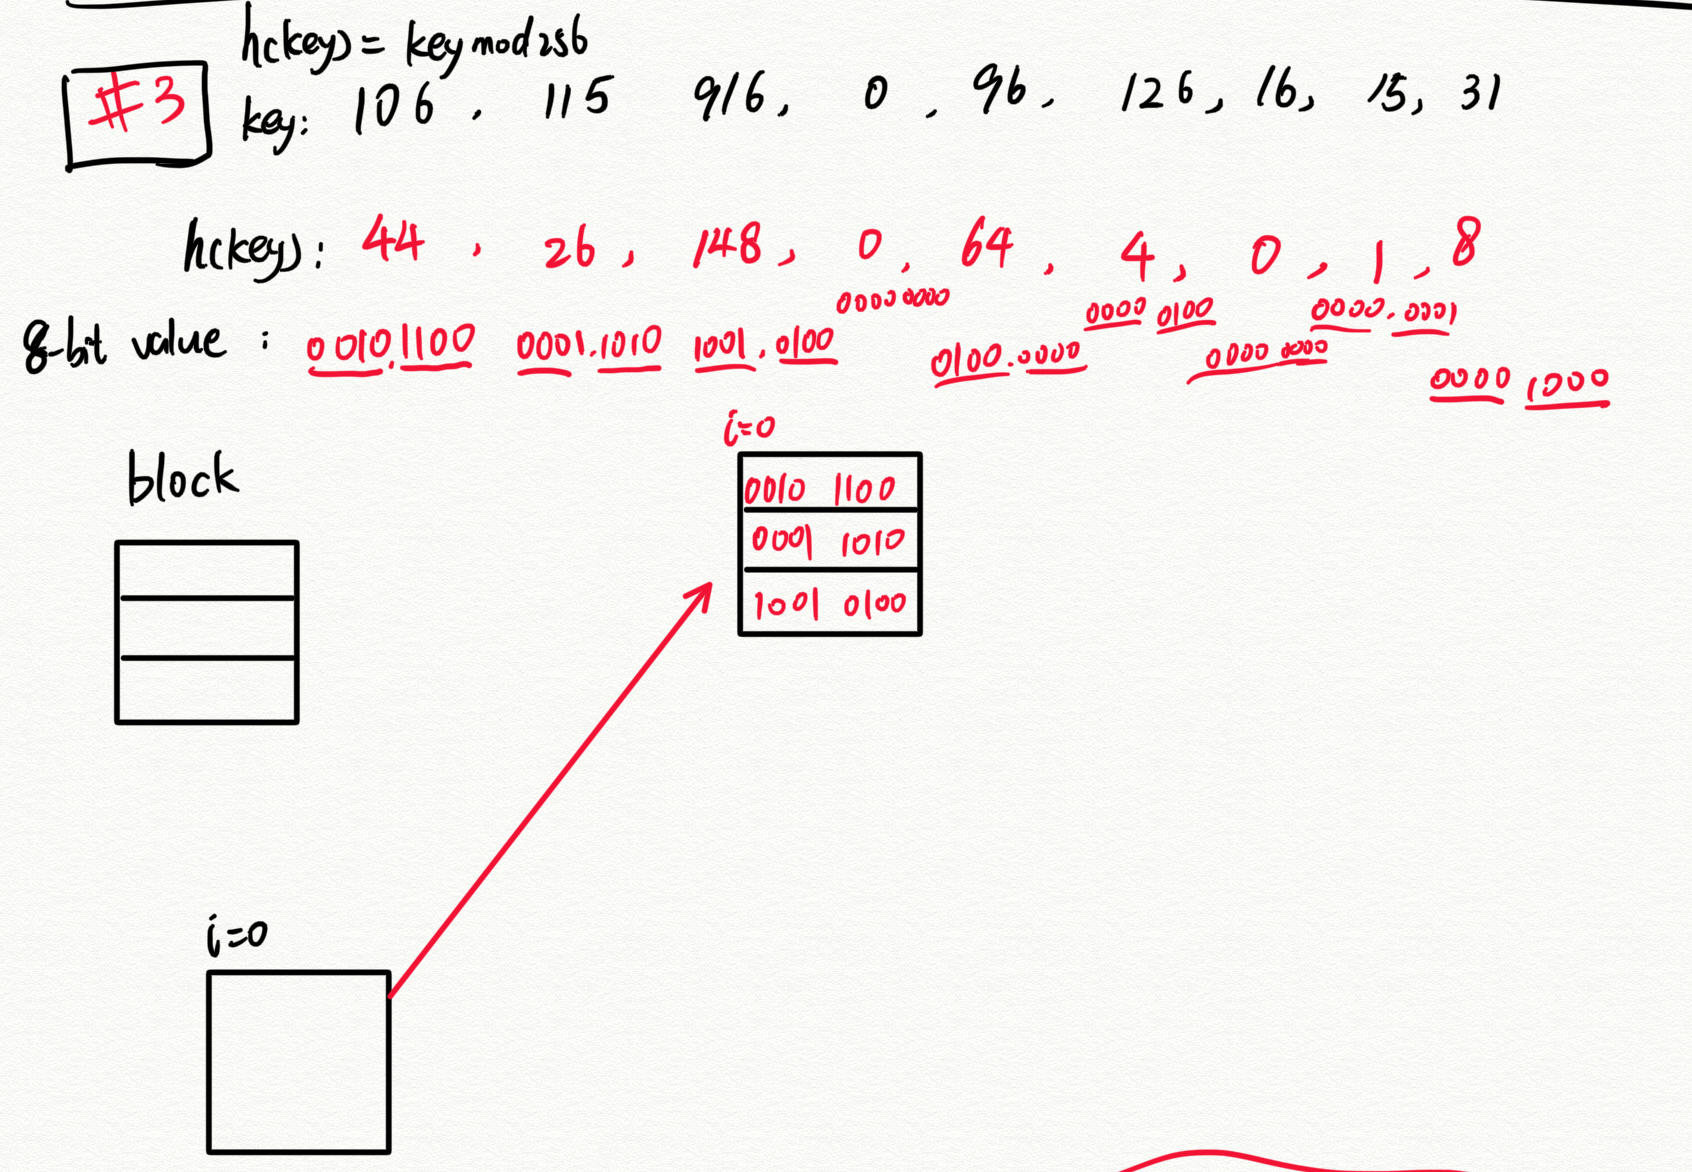 h(key) = key mod 256
#3
key: 106, 115 916, 0, 96, 126, 16, 15, 31
h(key): 44, 26, 148, 0, 64, 4, 0, 1, 8
8-bit value: 0010.1100 0001.1010 1001.0100 00000000 0100.0000 0000 0100 0000 0000 0000.0001 0000 1000
i=0
block
0010 1100
0001 1010
1001 0100
i=0